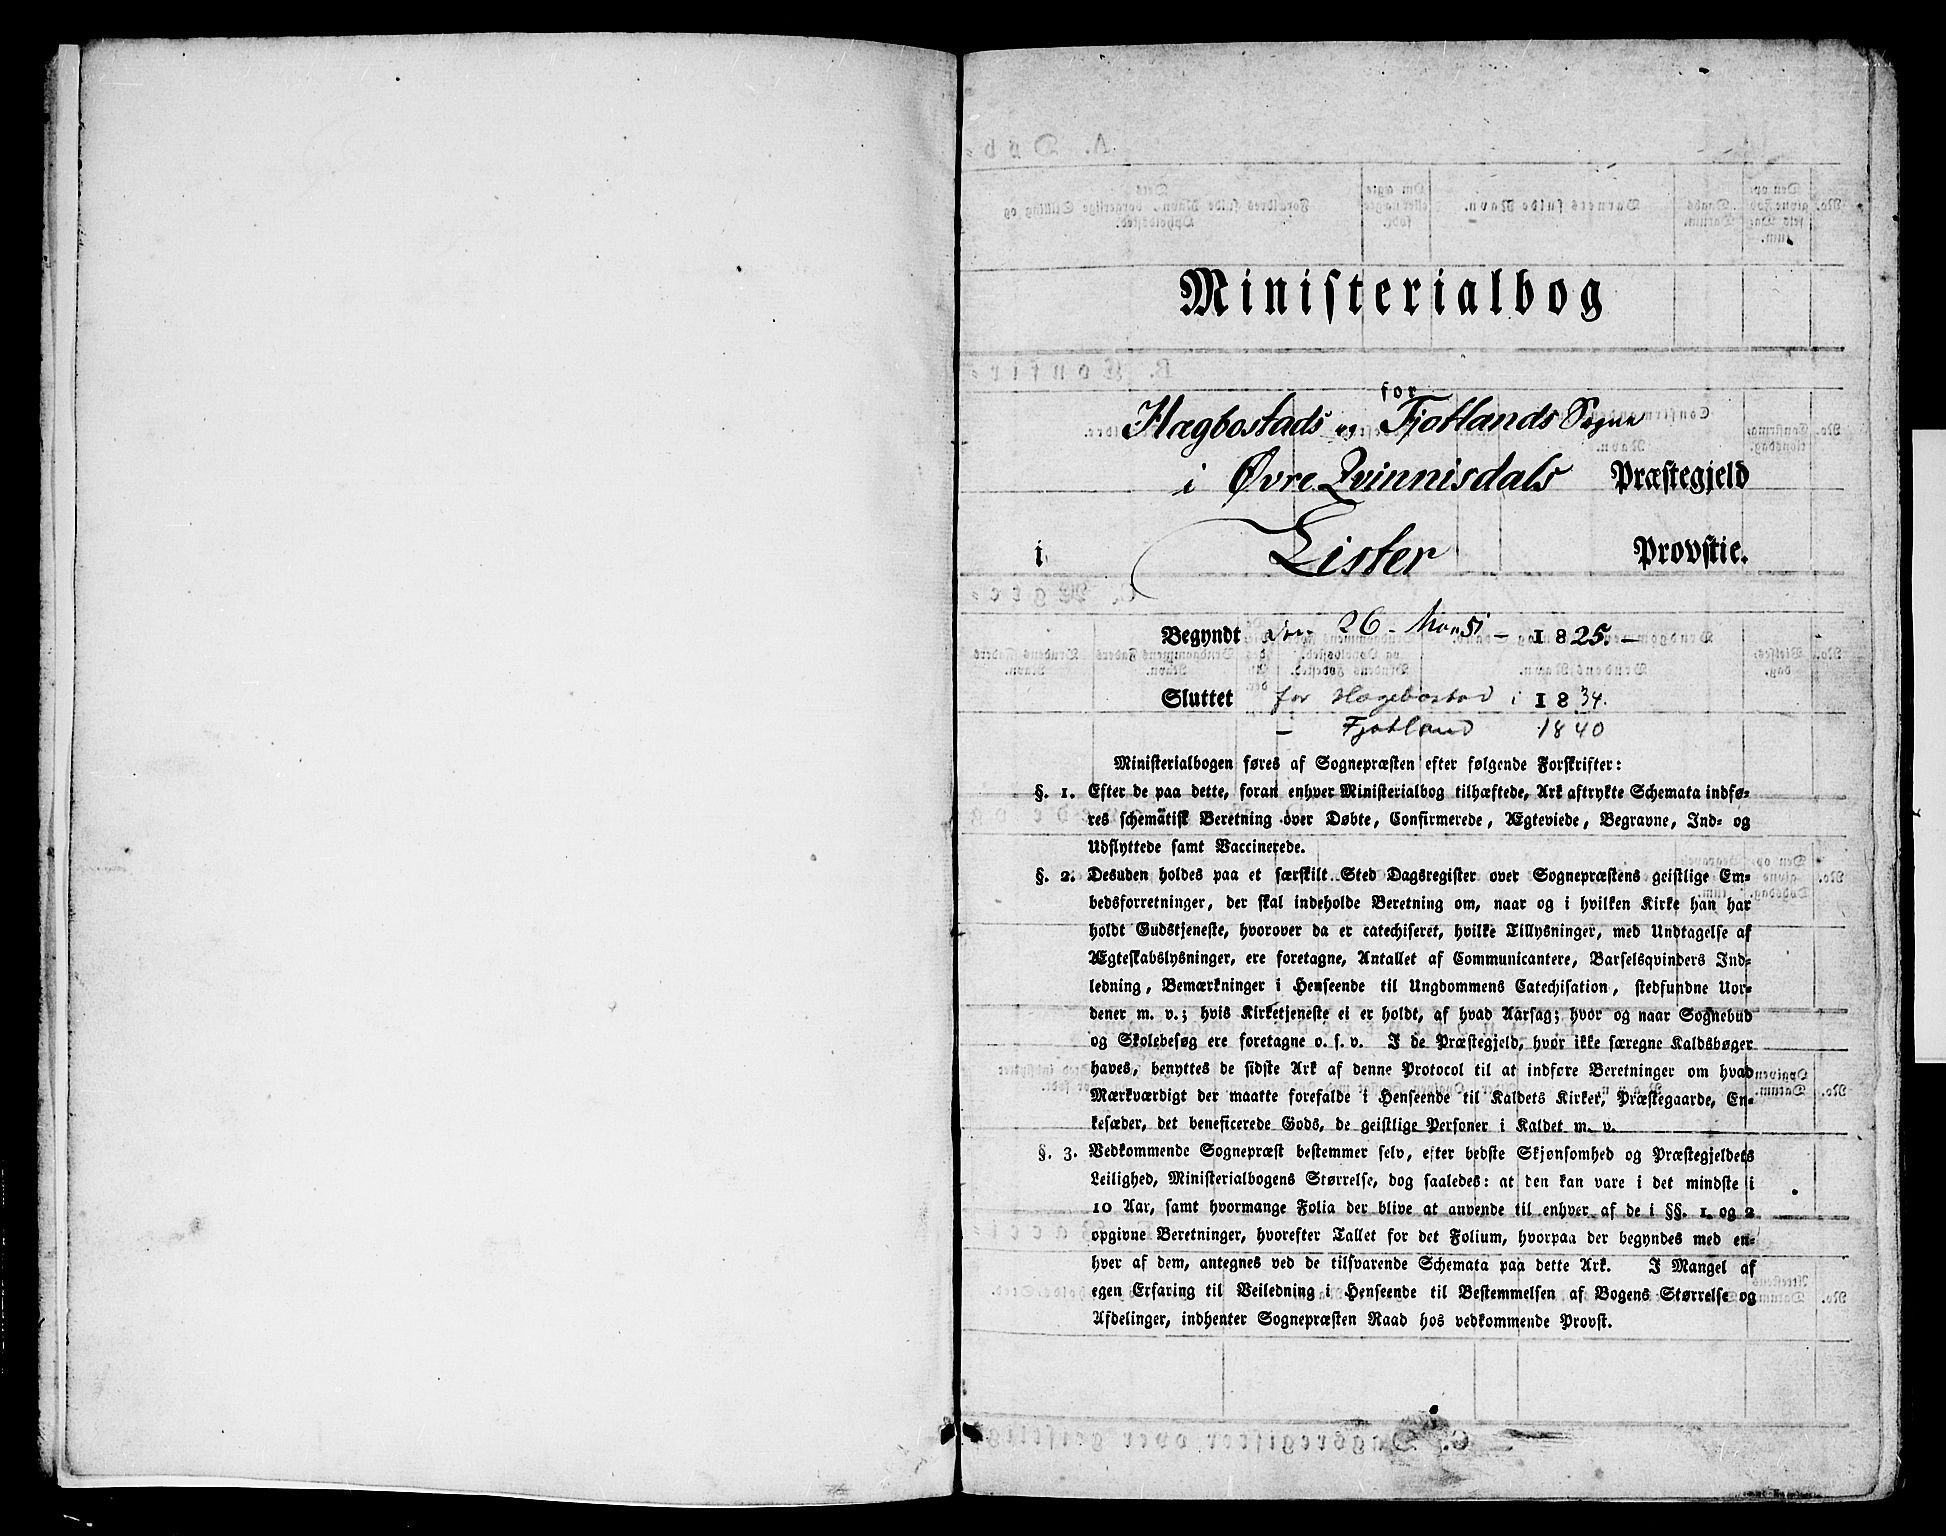 Ministerialbog
for
Hægbostads og Fjotlands Sogne
i Øvre Qvinnisdals Præstegjeld
i Lister Provstie.
Begyndt den 26 - Marsi - 1825. -
Sluttet for Hægebostad i 1834.
- Fjotland 1840
Ministerialbogen føres af Sognepræsten efter følgende Forskrifter:
§. 1. Efter de paa dette, foran enhver Ministerialbog tilhæftede, Ark aftrykte Schemata indfø-
res schematisk Beretning over Døbte, Confirmerede, Ægteviede, Begravne, Ind- og
Udflyttede samt Vaccinerede.
§. 2. Desuden holdes paa et særskilt Sted Dagsregister over Sognepræstens geistlige Em-
bedsforretninger, der skal indeholde Beretning om, naar og i hvilken Kirke han har
holdt Gudstjeneste, hvorover da er catechiseret, hvilke Tillysninger, med Undtagelse af
Ægteskabslysninger, ere foretagne, Antallet af Communicantere, Barselqvinders Ind-
ledning, Bemærkninger i Henseende til Ungdommens Catechisation, stedfundne Uor-
dener m. v.; hvis Kirketjeneste ei er holdt, af hvad Aarsag; hvor og naar Sognebud
og Skolebesøg ere foretagne o. s. v. I de Præstegjeld, hvor ikke særegne Kaldsbøger
haves, benyttes de sidste Ark af denne Protocol til at indføre Beretninger om hvad
Mærkværdigt der maatte forefalde i Henseende til Kaldets Kirker, Præstegaarde, En-
kesæder, det beneficerede Gods, de geistlige Personer i Kaldet m. v.
§. 3. Vedkommende Sognepræst bestemmer selv, efter bedste Skjønsomhed og Præstegjeldets
Leilighed, Ministerialbogens Størrelse, dog saaledes: at den kan vare i det mindste i
10 Aar, samt hvormange Folia der blive at anvende til enhver af de i §§. 1. og 2
opgivne Beretninger, hvorefter Tallet for det Folium, hvorpaa der begyndes med en-
hver af dem, antegnes ved de tilsvarende Schemata paa dette Ark. I Mangel af
egen Erfaring til Veiledning i Henseende til Bestemmelsen af Bogens Størrelse og
Afdelinger, indhenter Sognepræsten Raad hos vedkommende Provst.